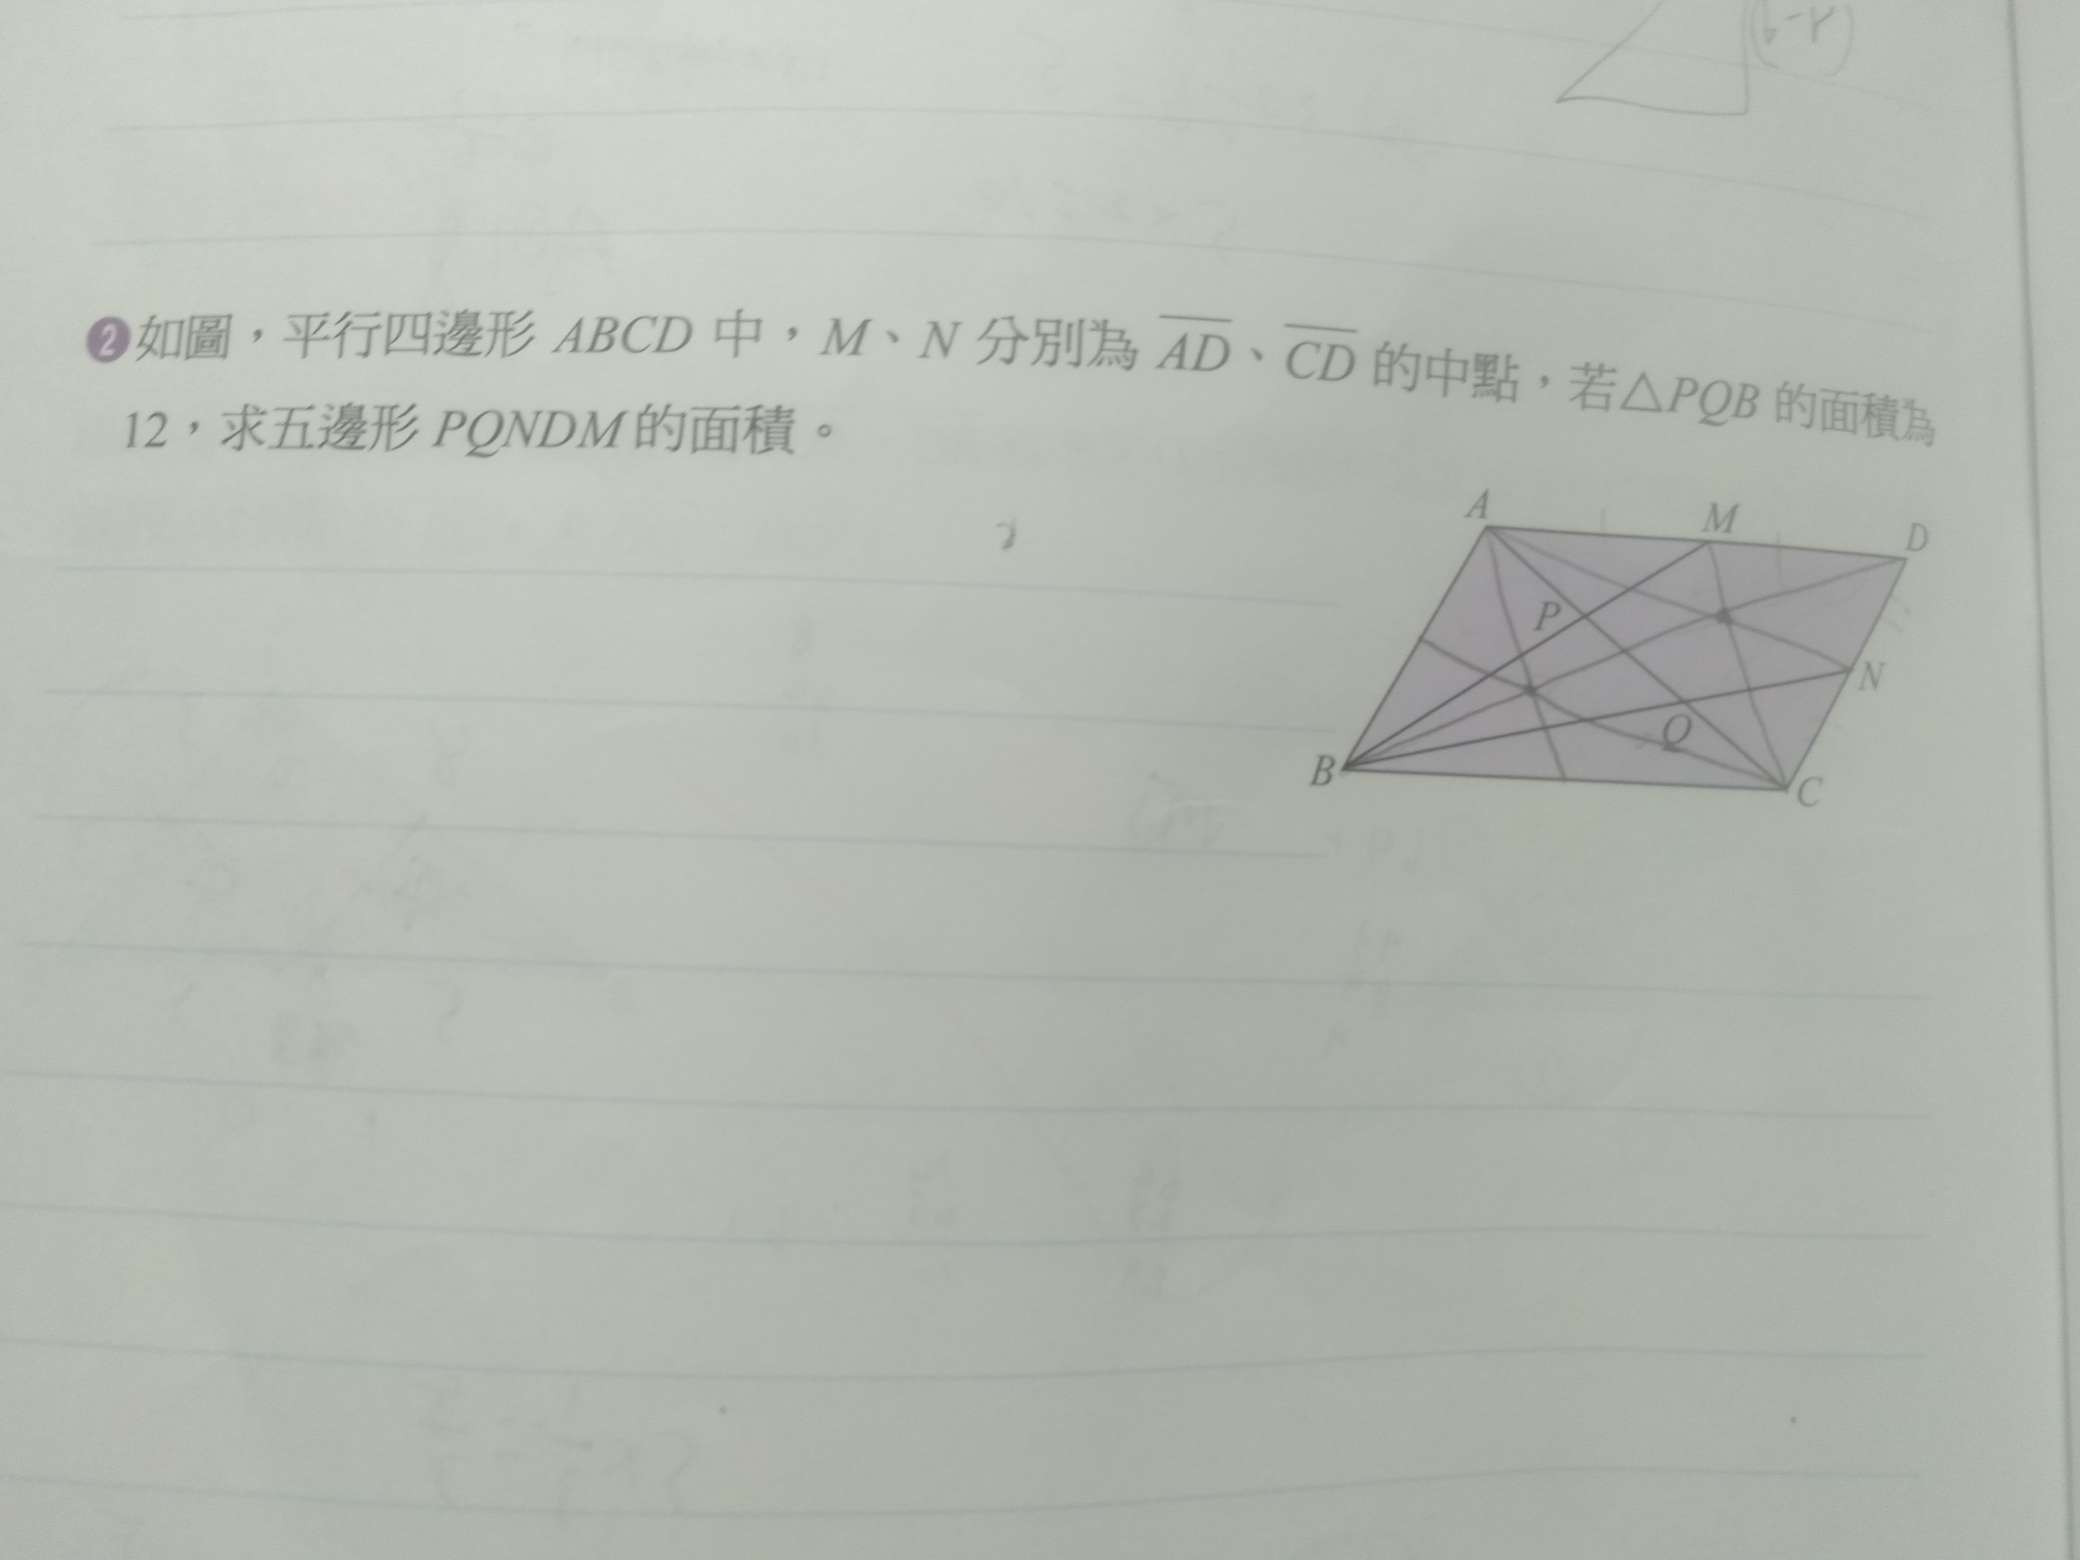 (b-r)
❷如圖，平行四邊形 ABCD 中，M、N 分別為 AD、CD 的中點，若△PQB 的面積為
12，求五邊形 PQNDM 的面積。
A M D
P
N
Q
B C